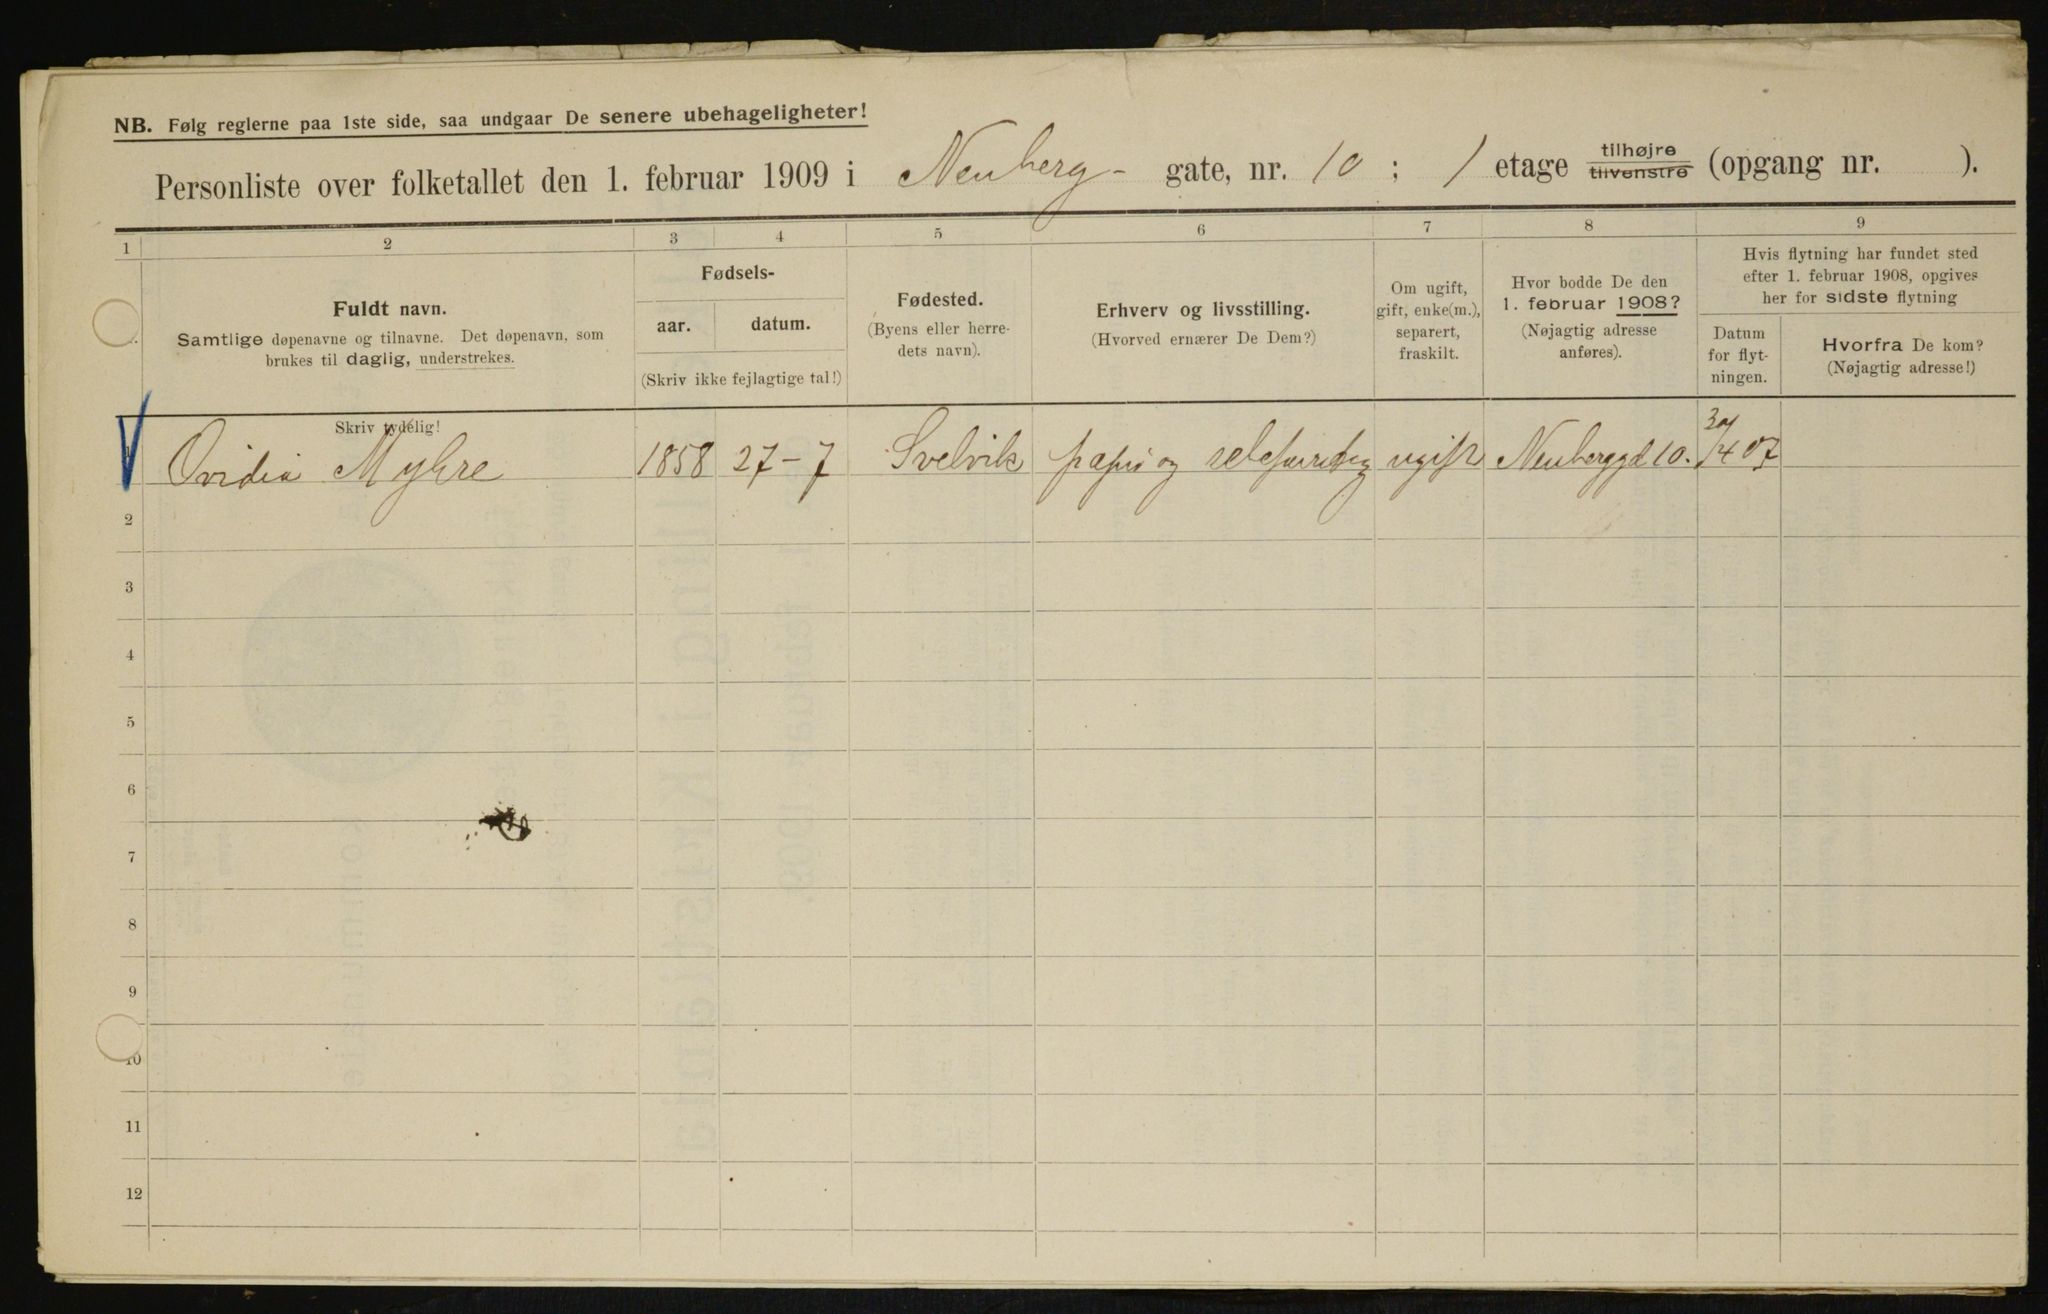 NB. Følg reglerne paa 1ste side, saa undgaar De senere ubehageligheter!
Personliste over folketallet den 1. februar 1909 i Neuberg- gate, nr. 10 ; 1 etage tilhøjre tilvenstre (opgang nr. ).
1 2 3 4 5 6 7 8 9
Fuldt navn.
Samtlige døpenavne og tilnavne. Det døpenavn, som
brukes til daglig, understrekes.
Fødsels-
aar. datum.
(Skriv ikke fejlagtige tal!)
Fødested.
(Byens eller herre-
dets navn).
Erhverv og livsstilling.
(Hvorved ernærer De Dem?)
Om ugift,
gift, enke(m.),
separert,
fraskilt.
Hvor bodde De den
1. februar 1908?
(Nøjagtig adresse
anføres).
Hvis flytning har fundet sted
efter 1. februar 1908, opgives
her for sidste flytning
Datum
for flyt-
ningen.
Hvorfra De kom?
(Nøjagtig adresse!)
Skriv tydelig!
Ovidia Myhre 1858 27-7 Svelvik papir og ugift Neuberggd 10. 30/4 07
2
3
4
5
6
7
8
9
10
11
12